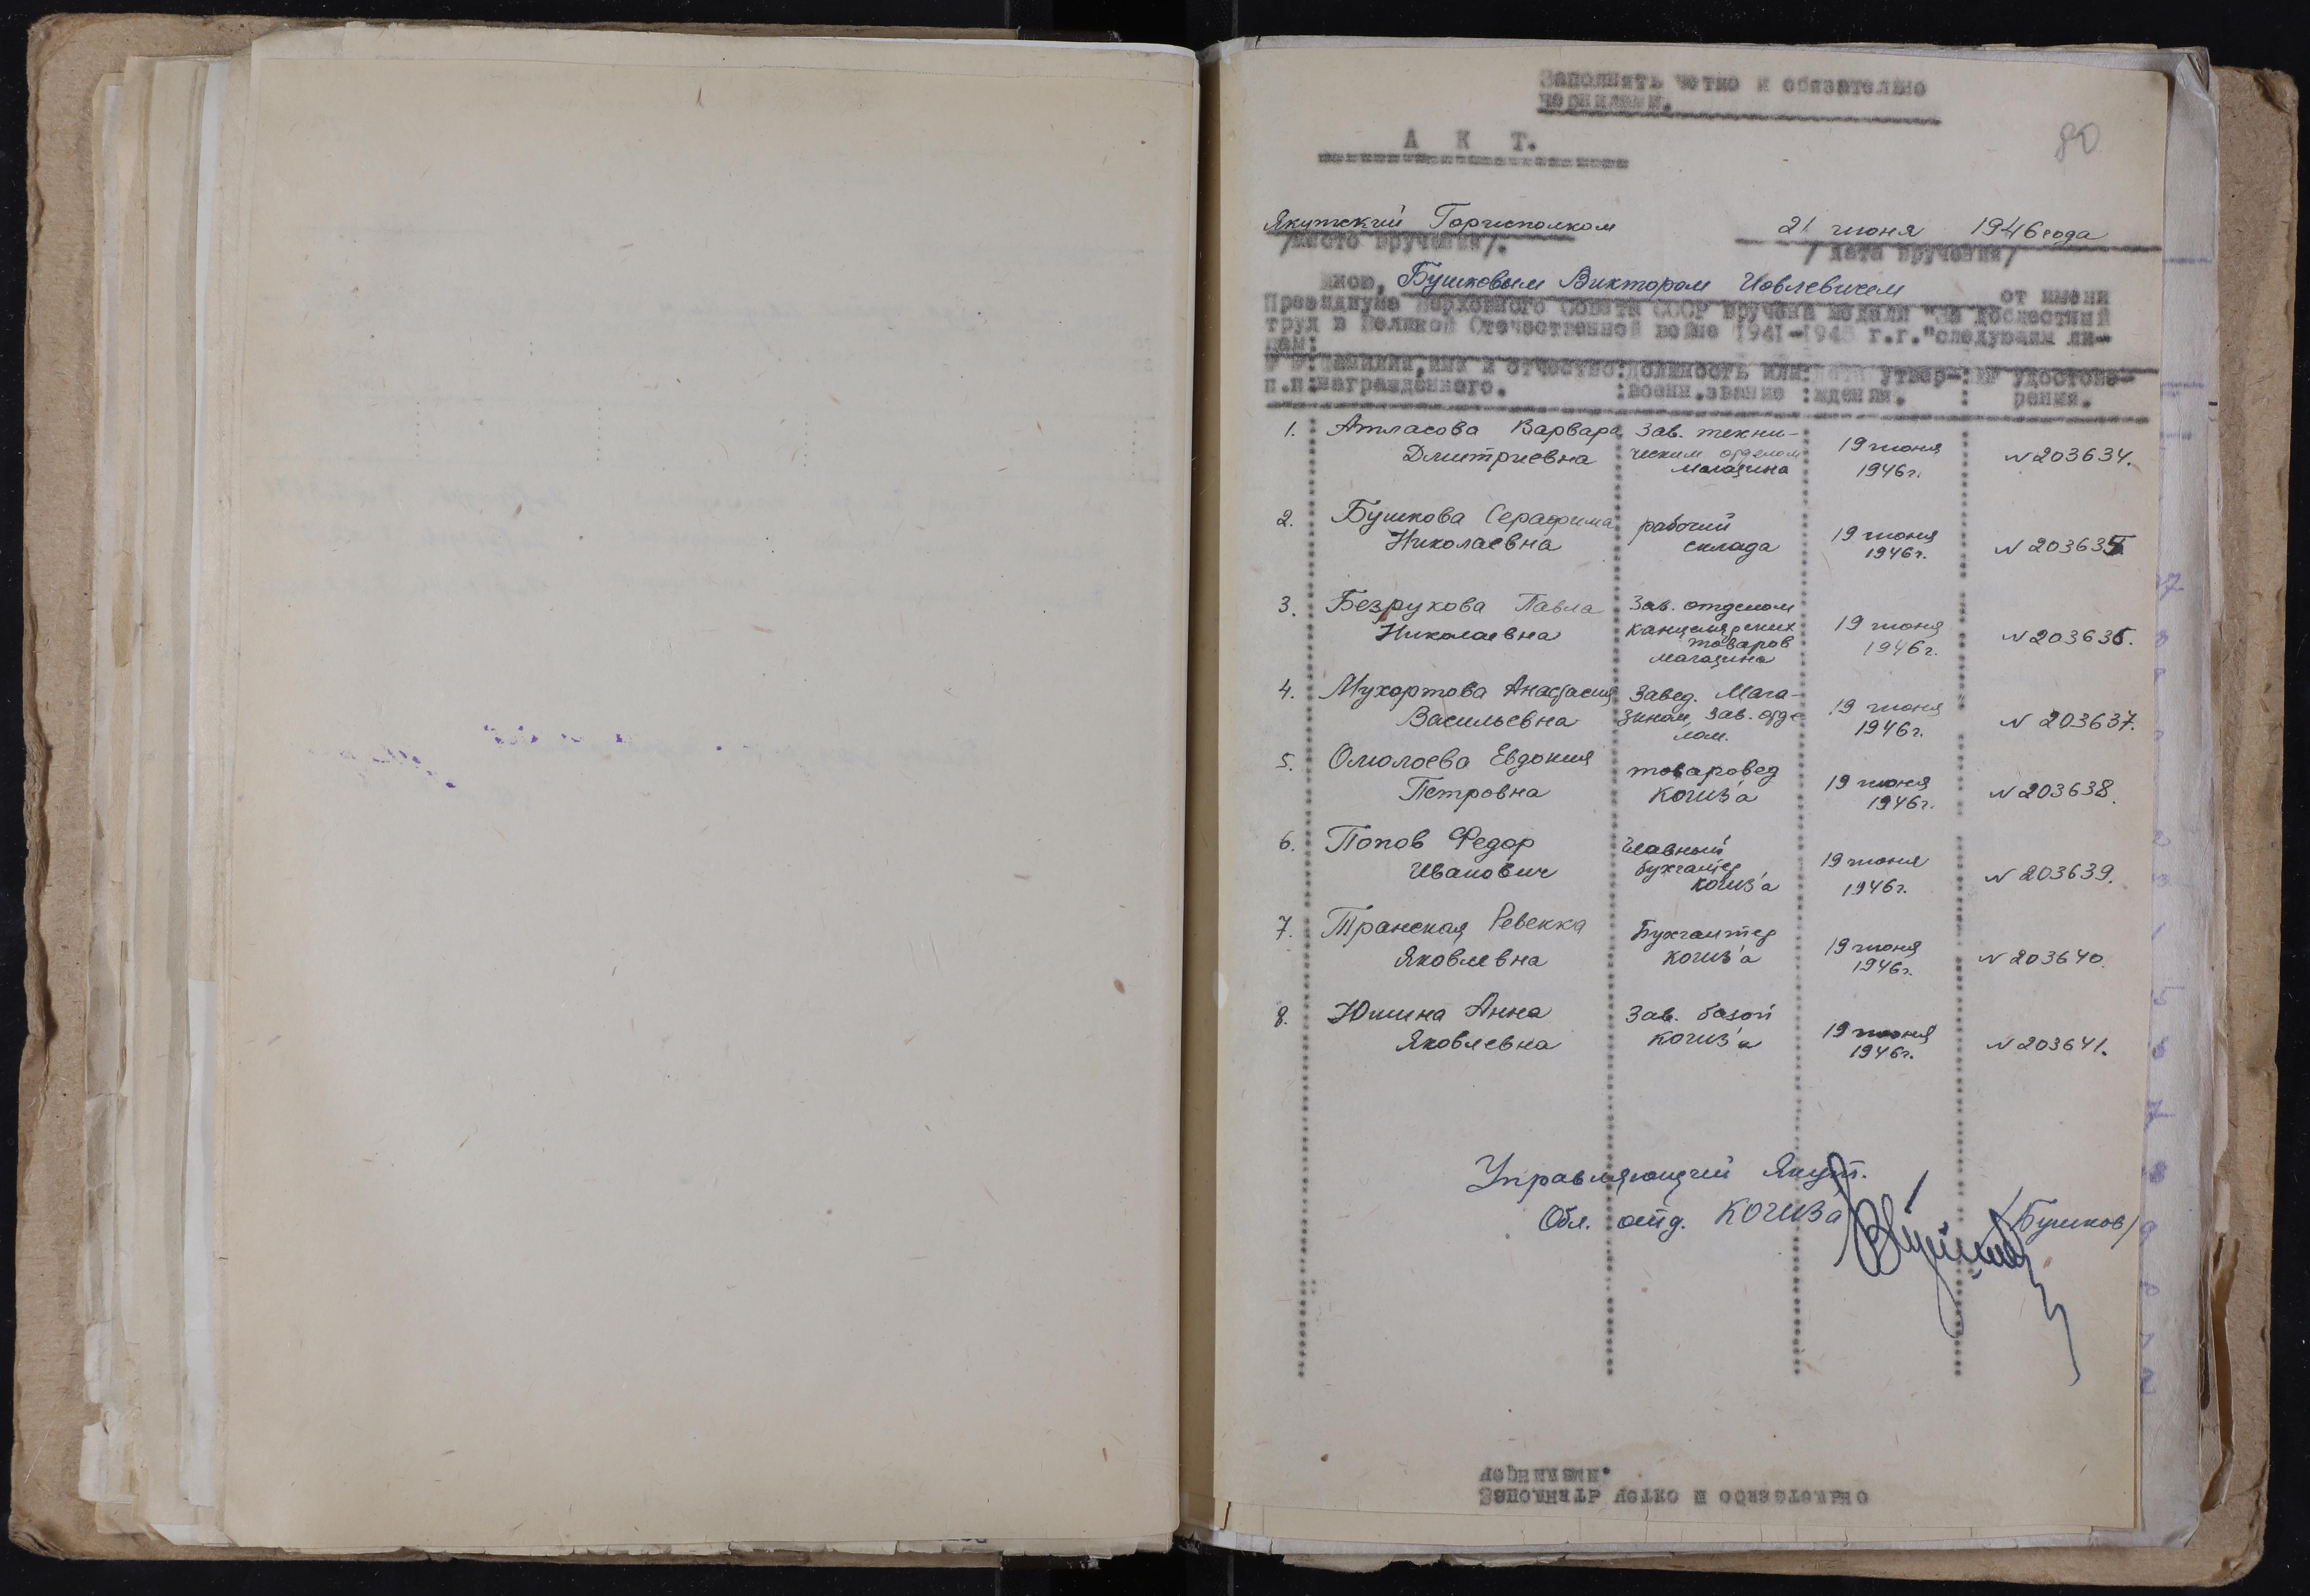 Заполнять четко и обязательно
чернилами.
А К Т.
80
Якутский Горисполком 21 июня 1946 года
/место вручения/. / дата вручения/
мною, Бушковым Виктором Иовлевичем от имени
Президиума Верховного Совета СССР вручена медали "За доблестный
труд в Великой Отечественной войне 1941-1945 г.г." следующим ли-
цам:
№ №:Фамилия, имя и отчество:должность или:дата утвер-:№№ удостове-
п.п:награжденного. :воен.звание :ждения. : рения.
1. Атласова Варвара Зав. техни-
Дмитриевна ческим отделом 19 июня N 203634.
магазина 1946г.
2. Бушкова Серафима рабочий
Николаевна склада 19 июня N 203635
1946г.
3. Безрукова Павла Зав. отделом
Николаевна канцелярских 19 июня N 203636.
товаров 1946г.
магазина
4. Мухортова Анастасия Завед. Мага-
Васильевна зином, зав. отде 19 июня N 203637.
лом. 1946г.
5. Омолоева Евдокия товаровед
Петровна КОГИЗ'а 19 июня N 203638.
1946г.
6. Попов Федор Главный
Иванович бухгалтер 19 июня N 203639.
КОГИЗ'а 1946г.
7. Транская Ревекка Бухгалтер
Яковлевна КОГИЗ'а 19 июня N 203640.
1946г.
8. Юшина Анна Зав. базой
Яковлевна КОГИЗ'а 19 июня N 203641.
1946г.
Управляющий Якут.
Обл. отд. КОГИЗ'а /Бушков/
чернилами.
Заполнять четко и обязательно